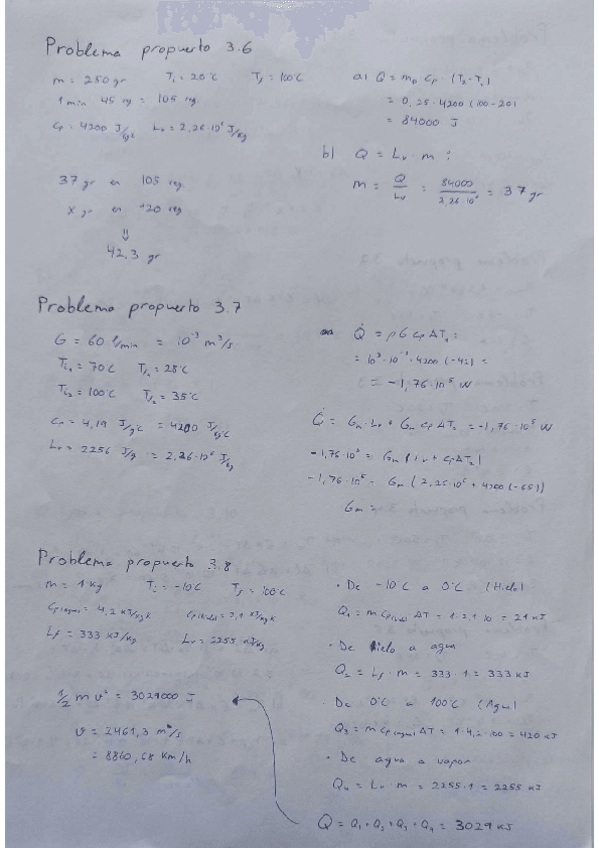 Problema propuesto 3.6
m = 250 gr T₁ = 20°C T₂ = 100°C
1 min 45 sg = 105 sg
Cp = 4200 J/kg°C Lv = 2,26·10⁶ J/kg
37 gr en 105 sg
x gr en 120 sg
⇓
42,3 gr
a) Q = m Cp · (T₂ - T₁)
= 0,25 · 4200 (100 - 20)
= 84000 J
b) Q = Lv · m ;
m = Q/Lv = 84000/2,26·10⁶ = 37 gr
Problema propuesto 3.7
G = 60 l/min = 10⁻³ m³/s
= 70°C = 28°C
= 100°C = 35°C
Cp = 4,19 J/g°C = 4200 J/kg°C
Lv = 2256 J/g = 2,26·10⁶ J/kg
Q̇ = ρ G Cp ΔT₁ ;
= 10³ · 10⁻³ · 4200 (-42) =
= -1,76·10⁵ W
Q̇ = Gm · Lv + Gm Cp ΔT₂ = -1,76·10⁵ W
-1,76·10⁵ = Gm (Lv + Cp ΔT₂)
-1,76·10⁵ = Gm (2,26·10⁶ + 4200 (-65))
Gm =
Problema propuesto 3.8
m = 1 Kg T₁ = -10°C T₂ = 100°C
Cp(agua) = 4,2 KJ/kgK Cp(hielo) = 2,1 KJ/kgK
Lf = 333 KJ/Kg Lv = 2255 KJ/Kg
1/2 m v² = 3029000 J
v = 2461,3 m/s
= 8860,68 Km/h
· De -10°C a 0°C (Hielo)
Q₁ = m Cp ΔT = 1·2,1·10 = 21 KJ
· De hielo a agua
Q₂ = Lf · m = 333 · 1 = 333 KJ
· De 0°C a 100°C (Agua)
Q₃ = m Cp(agua) ΔT = 1·4,2·100 = 420 KJ
· De agua a vapor
Q₄ = Lv · m = 2255·1 = 2255 KJ
Q = Q₁ + Q₂ + Q₃ + Q₄ = 3029 KJ